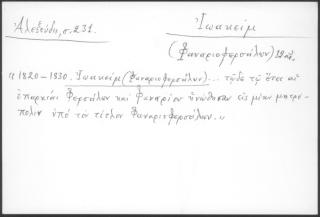 Ἀλεξούδη, σ. 231.
Ἰωακείμ
(Φαναριοφερσάλων) 19 αἰ.
« 1820-1830. Ἰωακείμ (Φαναριοφερσάλων)... τῷδε τῷ ἔτει αἱ
ἐπαρχίαι Φερσάλων καὶ Φαναρίου ἡνώθησαν εἰς μίαν μητρό-
πολιν ὑπὸ τὸν τίτλον Φαναριοφερσάλων. »